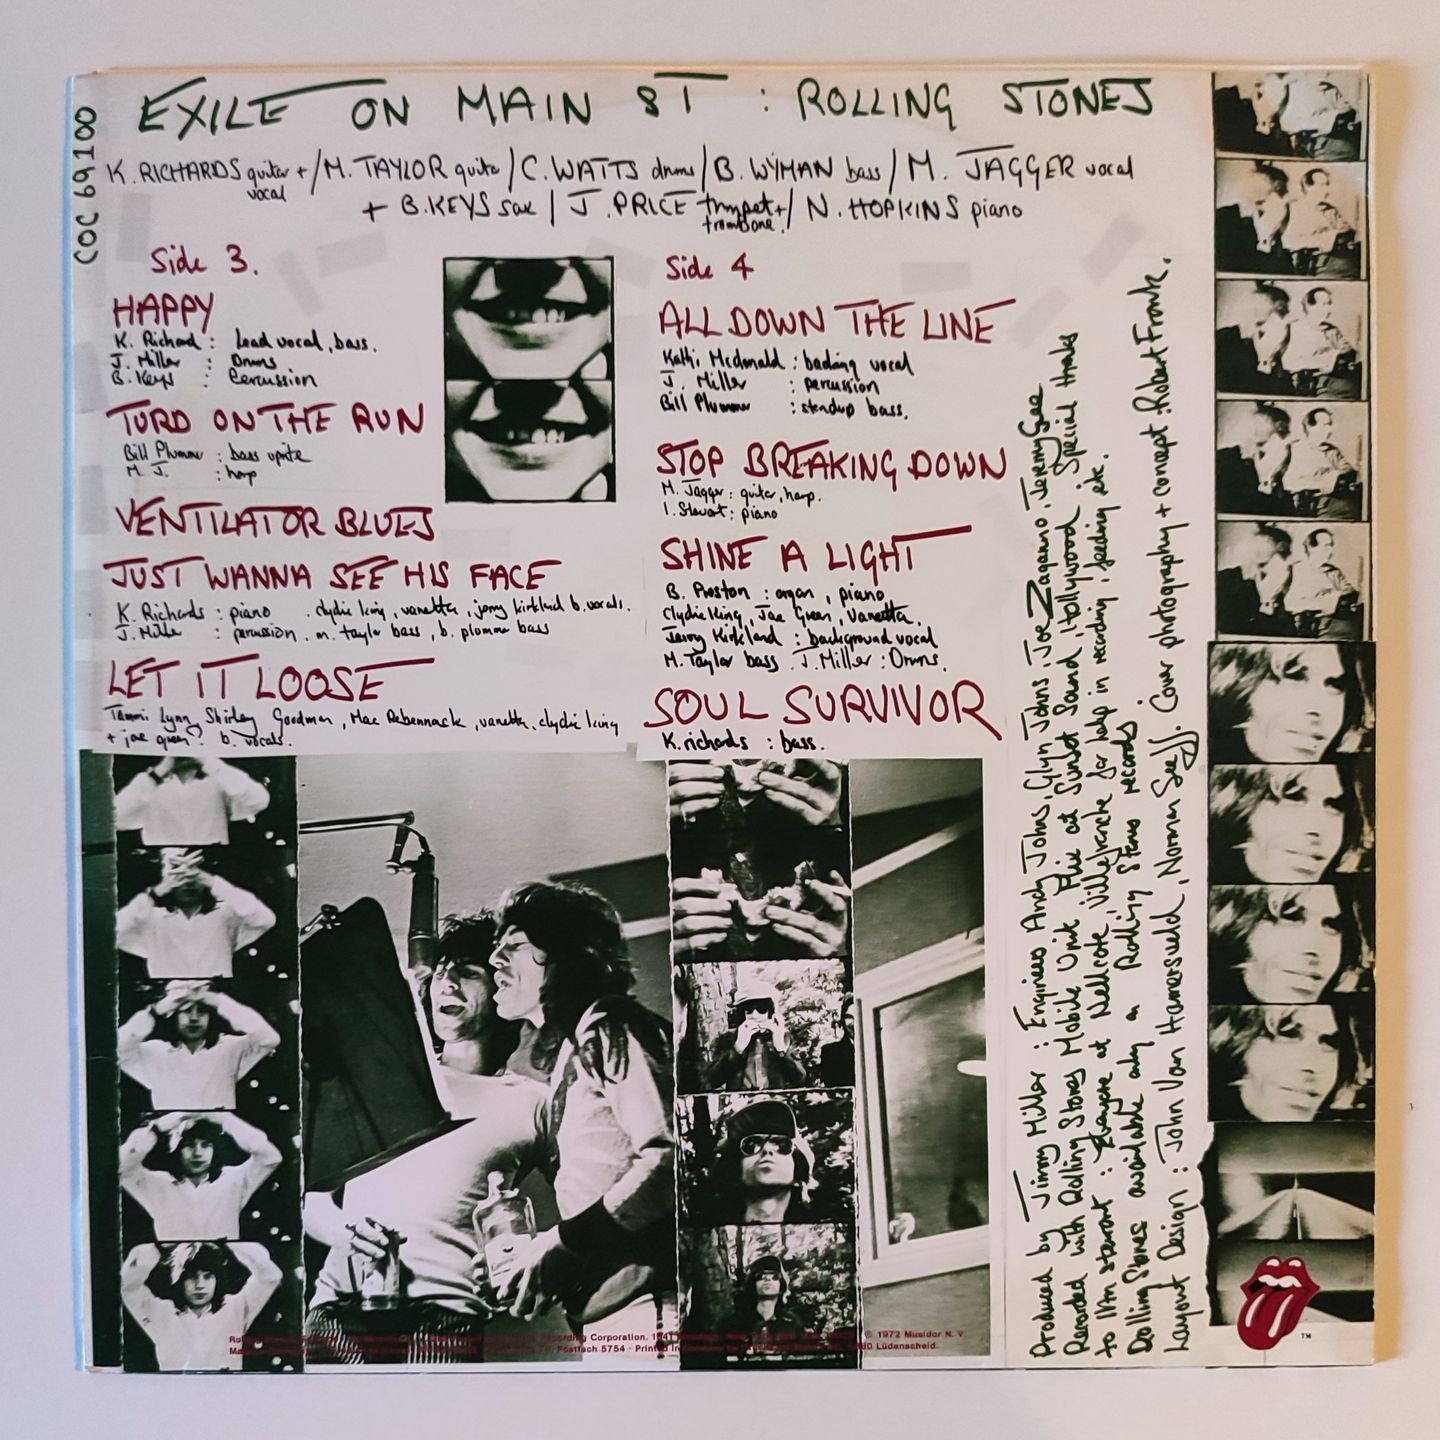 COC 69100
EXILE ON MAIN ST : ROLLING STONES
K. RICHARDS guitar + vocal / M. TAYLOR guitar / C. WATTS drums / B. WYMAN bass / M. JAGGER vocal
+ B. KEYS sax / J. PRICE trumpet + trombone. / N. HOPKINS piano
Side 3.
HAPPY
K. Richard : Lead vocal, bass.
J. Miller : Drums
B. Keys : Percussion
TURD ON THE RUN
Bill Plummer : bass uprite
M. J. : harp
VENTILATOR BLUES
JUST WANNA SEE HIS FACE
K. Richards : piano . clydie king, vanetta, jerry kirkland b. vocals.
J. Miller : percussion. m. taylor bass, b. plummer bass
LET IT LOOSE
Tammi Lynn, Shirley Goodman, Mac Rebennack, vanetta, clydie king
+ joe green? b. vocals.
Side 4
ALL DOWN THE LINE
Kathi Mcdonald : backing vocal
J. Miller : percussion
Bill Plummer : standup bass.
STOP BREAKING DOWN
M. Jagger : guitar, harp.
I. Stewart : piano
SHINE A LIGHT
B. Preston : organ, piano
Clydie King, Joe Green, Vanetta.
Jerry Kirkland : background vocal
M. Taylor bass . J. Miller : Drums.
SOUL SURVIVOR
K. richards : bass.
Produced by Jimmy Miller : Engineers Andy Johns, Glyn Johns, Joe Zagarino, Jeremy Gee
Recorded with Rolling Stones Mobile Unit Mix at Sunset Sound, Hollywood. Special thanks
to Ian stewart : Everyone at Nellcote, Villefranche for help in recording, feeding etc.
Rolling Stones available only on Rolling Stones records
Layout Design : John Van Hamersveld, Norman Seeff. Cover photography + concept : Robert Frank.
Recording Corporation. © 1972 Musidor N. V.
Postfach 5754 · Printed in Lüdenscheid.
TM